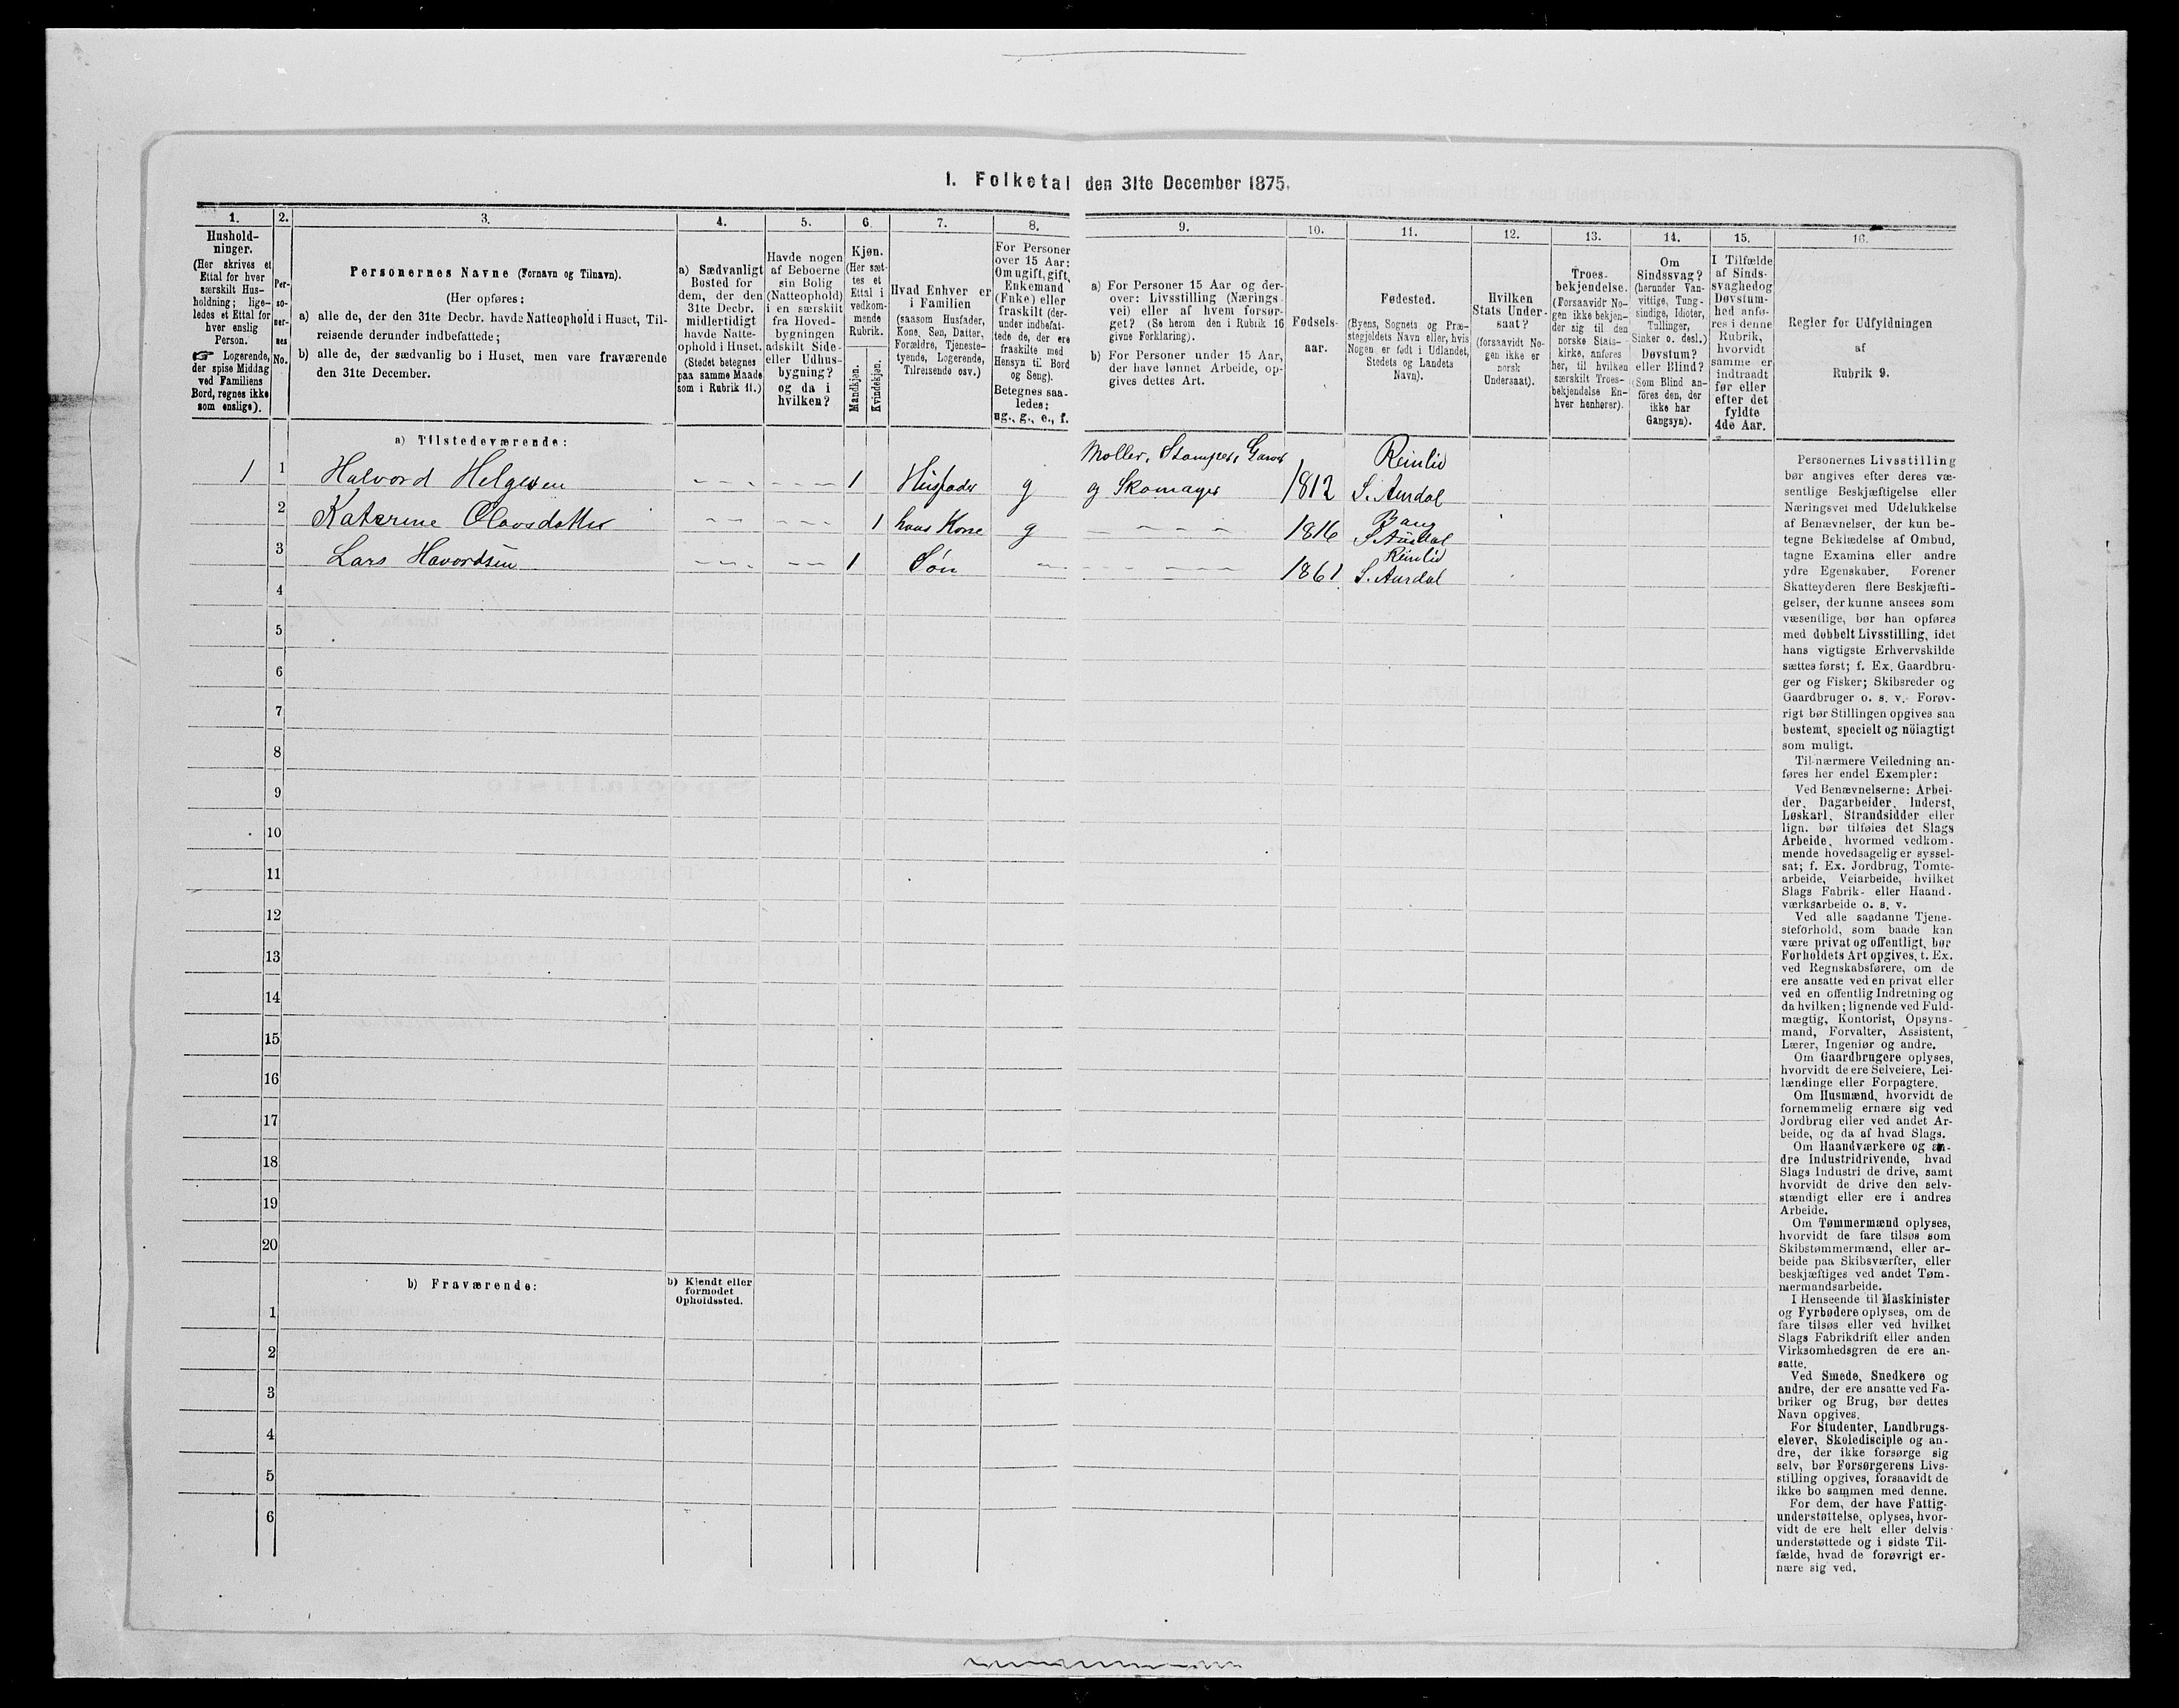 I. Folketal den 31te December 1875.
1.
Hushold-
ninger.
(Her skrives et
Ettal for hver
særskilt Hus-
holdning; lige-
ledes et Ettal for
hver enslig
Person.
☞ Logerende,
der spise Middag
ved Familiens
Bord, regnes ikke
som enslige).
2.
Per-
so-
ner-
nes
No.
3.
Personernes Navne (Fornavn og Tilnavn).
(Her opføres:
a) alle de, der den 31te Decbr. havde Natteophold i Huset, Til-
reisende derunder indbefattede;
b) alle de, der sædvanlig bo i Huset, men vare fraværende
den 31te December.
4.
a) Sædvanligt
Bosted for
dem, der den
31te Decbr.
midlertidigt
havde Natte-
ophold i Huset.
(Stedet betegnes
paa samme Maade
som i Rubrik 11.)
5.
Havde nogen
af Beboerne
sin Bolig
(Natteophold)
i en særskilt
fra Hoved-
bygningen
adskilt Side-
eller Udhus-
bygning?
og da i
hvilken?
6.
Kjøn.
(Her sæt-
tes et
Ettal i
vedkom-
mende
Rubrik.
Mandkjøn.
Kvindekjøn.
7.
Hvad Enhver er
i Familien
(saasom Husfader,
Kone, Søn, Datter,
Forældre, Tjeneste-
tyende, Logerende,
Tilreisende osv.)
8.
For Personer
over 15 Aar:
Om ugift, gift,
Enkemand
(Enke) eller
fraskilt (der-
under indbefat-
tede de, der ere
fraskilte med
Hensyn til Bord
og Seng).
Betegnes saa-
ledes:
ug., g., e., f.
9.
a) For Personer 15 Aar og der-
over: Livsstilling (Nærings-
vei) eller af hvem forsør-
get? (Se herom den i Rubrik 16
givne Forklaring).
b) For Personer under 15 Aar,
der have lønnet Arbeide, op-
gives dettes Art.
10.
Fødsels-
aar.
11.
Fødested.
(Byens, Sognets og Præ-
stegjeldets Navn eller, hvis
Nogen er født i Udlandet,
Stedets og Landets
Navn).
12.
Hvilken
Stats Under-
saat?
(forsaavidt No-
gen ikke er
norsk
Undersaat).
13.
Troes-
bekjendelse.
(Forsaavidt No-
gen ikke bekjen-
der sig til den
norske Stats-
kirke, anføres
her, til hvilken
særskilt Troes-
bekjendelse En-
hver henhører).
14.
Om
Sindssvag?
(herunder Van-
vittige, Tung-
sindige, Idioter,
Tullinger,
Sinker o. desl.)
Døvstum?
eller Blind?
(Som Blind an-
føres den, der
ikke har
Gangsyn).
15.
I Tilfælde
af Sinds-
svaghed og
Døvstum-
hed anfø-
res i denne
Rubrik,
hvorvidt
samme er
indtraadt
før eller
efter det
fyldte
4de Aar.
16.
Regler for Udfyldningen
af
Rubrik 9.
a) Tilstedeværende:
Møller, Stamper, Garver Reinlid
1 1 Halvord Helgesen 1 Husfader g og Skomager 1812 S. Aurdal
Bang
2 Katerine Olavsdatter 1 hans Kone g 1816 S. Aurdal
Reinlid
3 Lars Havordsen 1 Søn 1861 S. Aurdal
4
5
6
7
8
9
10
11
12
13
14
15
16
17
18
19
20
b) Fraværende:
b) Kjendt eller
formodet
Opholdssted.
1
2
3
4
5
6
Personernes Livsstilling
bør angives efter deres væ-
sentlige Beskjæftigelse eller
Næringsvei med Udelukkelse
af Benævnelser, der kun be-
tegne Beklædelse af Ombud,
tagne Examina eller andre
ydre Egenskaber. Forener
Skatteyderen flere Beskjæfti-
gelser, der kunne ansees som
væsentlige, bør han opføres
med dobbelt Livsstilling, idet
hans vigtigste Erhvervskilde
sættes først; f. Ex. Gaardbru-
ger og Fisker; Skibsreder og
Gaardbruger o. s. v. Forøv-
rigt bør Stillingen opgives saa
bestemt, specielt og nöiagtigt
som muligt.
Til nærmere Veiledning an-
føres her endel Exempler:
Ved Benævnelserne: Arbei-
der, Dagarbeider, Inderst,
Løskarl, Strandsidder eller
lign. bør tilføies det Slags
Arbeide, hvormed vedkom-
mende hovedsagelig er syssel-
sat; f. Ex. Jordbrug, Tomte-
arbeide, Veiarbeide, hvilket
Slags Fabrik- eller Haand-
værksarbeide o. s. v.
Ved alle saadanne Tjene-
steforhold, som baade kan
være privat og offentligt, bør
Forholdets Art opgives, t. Ex.
ved Regnskabsførere, om de
ere ansatte ved en privat eller
ved en offentlig Indretning og
da hvilken; lignende ved Fuld-
mægtig, Kontorist, Opsyns-
mand, Forvalter, Assistent,
Lærer, Ingeniør og andre.
Om Gaardbrugere oplyses,
hvorvidt de ere Selveiere, Lei-
lændinge eller Forpagtere.
Om Husmænd, hvorvidt de
fornemmelig ernære sig ved
Jordbrug eller ved andet Ar-
beide, og da af hvad Slags.
Om Haandværkere og an-
dre Industridrivende, hvad
Slags Industri de drive, samt
hvorvidt de drive den selv-
stændigt eller ere i andres
Arbeide.
Om Tømmermænd oplyses,
hvorvidt de fare tilsøs som
Skibstømmermænd, eller ar-
beide paa Skibsværfter, eller
beskjæftiges ved andet Tøm-
mermandsarbeide.
I Henseende til Maskinister
og Fyrbødere oplyses, om de
fare tilsøs eller ved hvilket
Slags Fabrikdrift eller anden
Virksomhedsgren de ere an-
satte.
Ved Smede, Snedkere og
andre, der ere ansatte ved Fa-
briker og Brug, bør dettes
Navn opgives.
For Studenter, Landbrugs-
elever, Skoledisciple og an-
dre, der ikke forsørge sig
selv, bør Forsørgerens Livs-
stilling opgives, forsaavidt de
ikke bo sammen med denne.
For dem, der have Fattig-
understøttelse, oplyses, hvor-
vidt de ere helt eller delvis
understøttede og i sidste Til-
fælde, hvad de forøvrigt er-
nære sig ved.